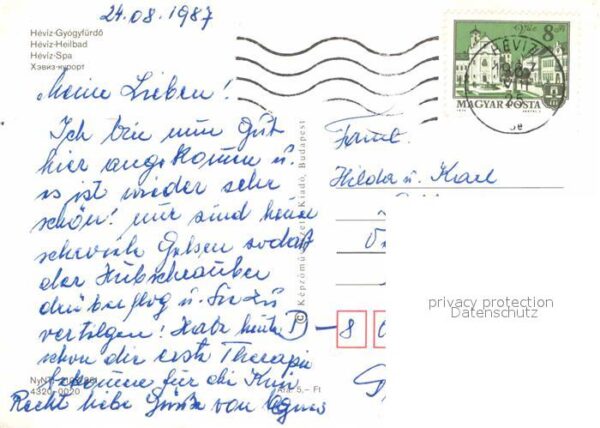 24.08.1987
Hévíz-Gyógyfürdő
Hévíz-Heilbad
Hévíz-Spa
Хэвиз-курорт
Meine Lieben!
Ich bin nun Gut
hier angekommen u.
es ist wieder sehr
schön! nur sind heuer
sehr viele Gelsen sodaß
der Hubschrauber
drüberflog u. Sie zu
vertilgen! Habe heute
schon die erste Therapie
bekomme für die Knie
Recht liebe Grüße von Agnes
4320-0020
Ára: 5,- Ft
© Képzőművészeti Kiadó, Budapest
8 Ft
HÉVÍZ
1987
MAGYAR POSTA
Faml.
Hilda u. Karl
D - 8
privacy protection
Datenschutz